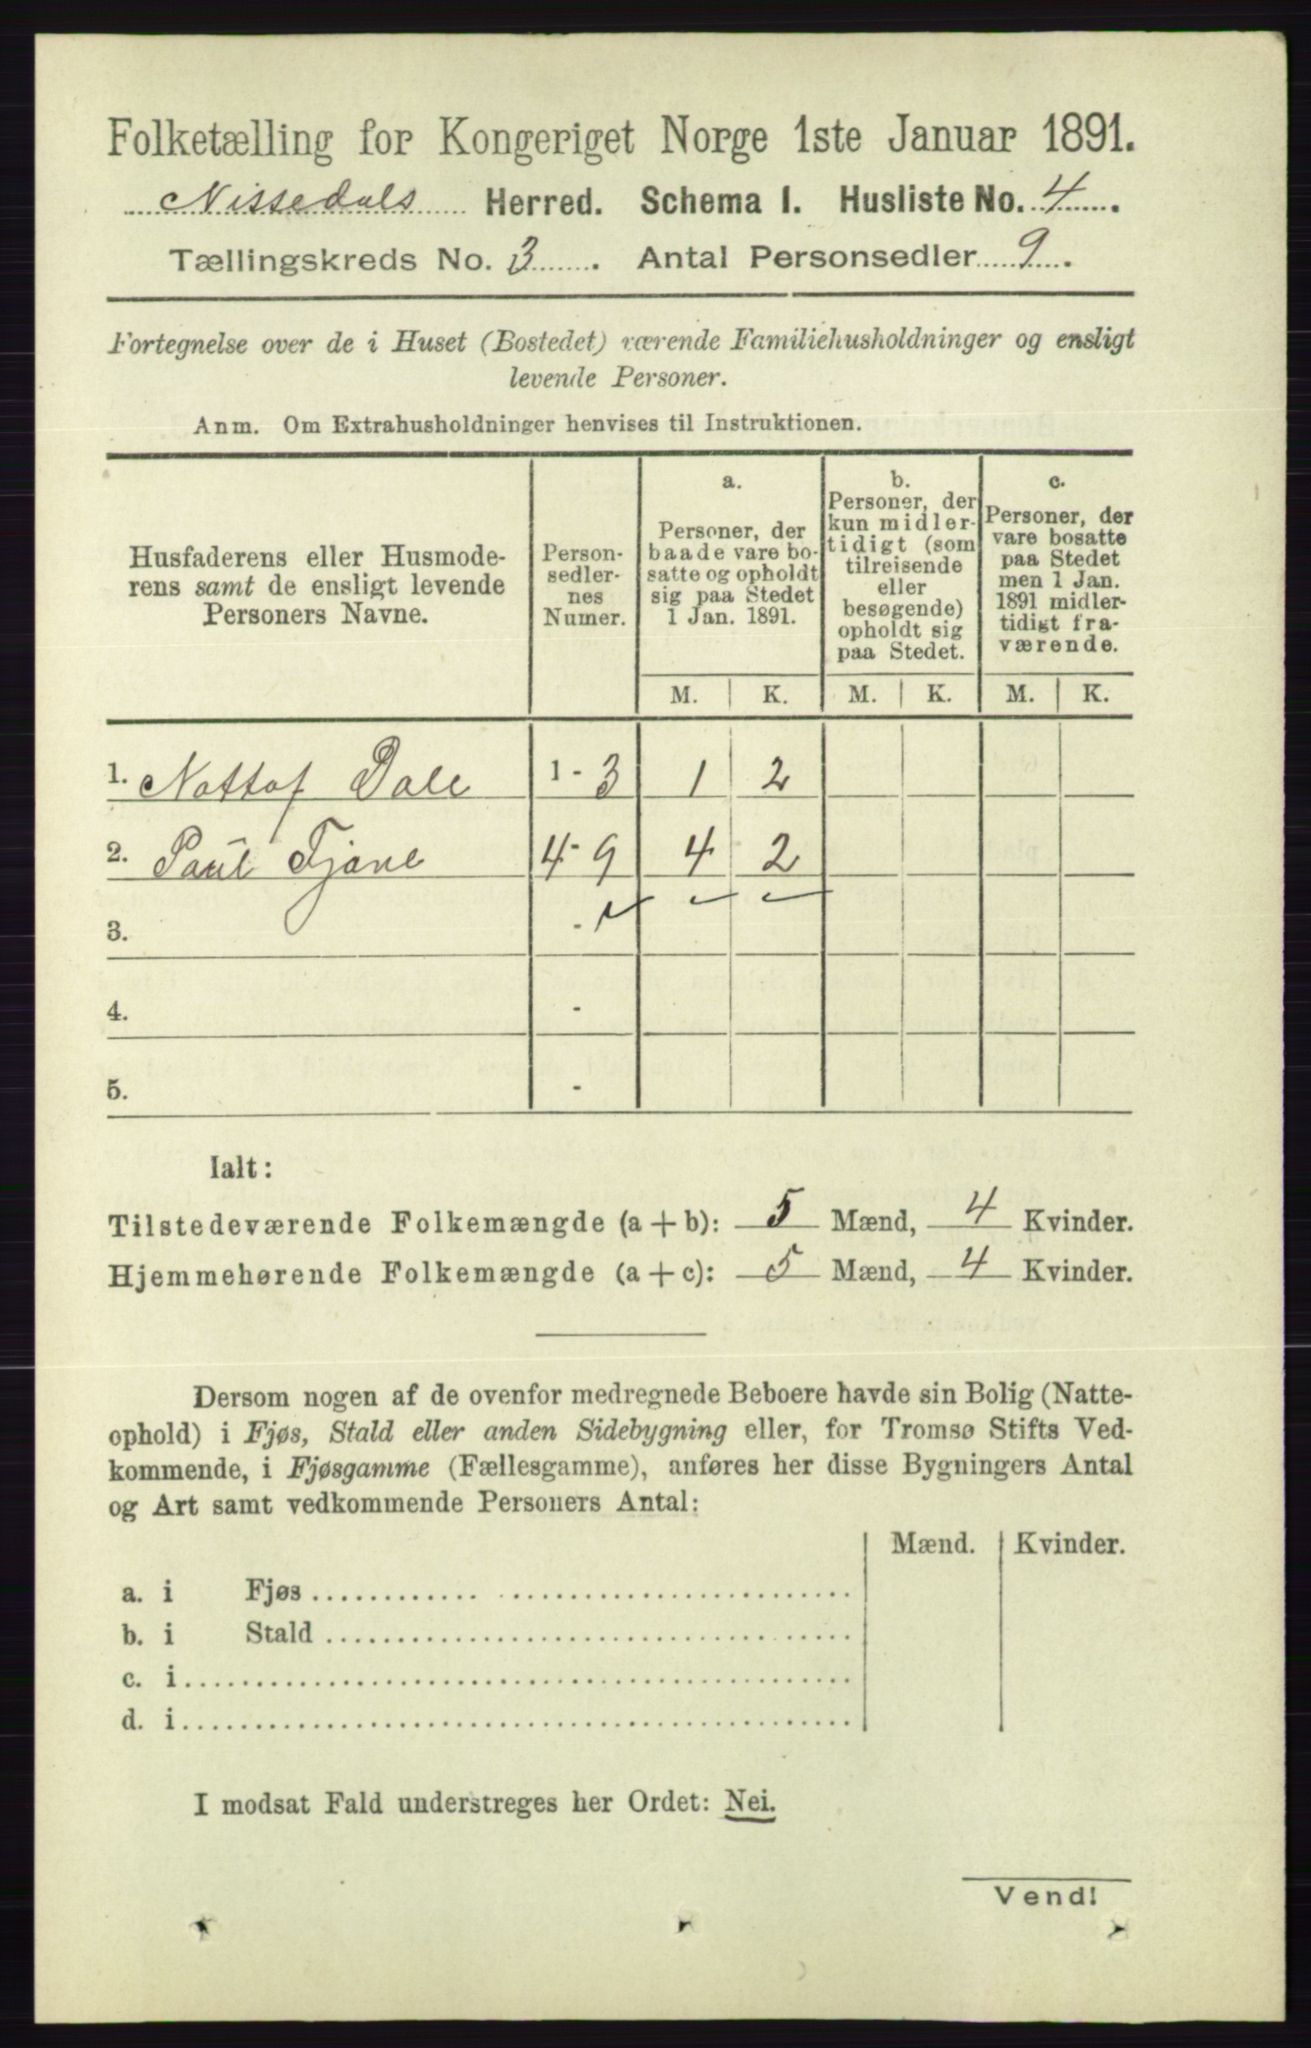 Folketælling for Kongeriget Norge 1ste Januar 1891.
Nissedals Herred. Schema I. Husliste No. 4.
Tællingskreds No. 3. Antal Personsedler 9.
Fortegnelse over de i Huset (Bostedet) værende Familiehusholdninger og ensligt
levende Personer.
Anm. Om Extrahusholdninger henvises til Instruktionen.
Husfaderens eller Husmode-
rens samt de ensligt levende
Personers Navne.
Person-
sedler-
nes
Numer.
a.
Personer, der
baade vare bo-
satte og opholdt
sig paa Stedet
1 Jan. 1891.
b.
Personer, der
kun midler-
tidigt (som
tilreisende
eller
besøgende)
opholdt sig
paa Stedet.
c.
Personer, der
vare bosatte
paa Stedet
men 1 Jan.
1891 midler-
tidigt fra-
værende.
M. K. M. K. M. K.
1. Nottof Dale 1 - 3 1 2
2. Paul Tjone 4 - 9 4 2
3. -
4. -
5. -
Ialt:
Tilstedeværende Folkemængde (a + b): 5 Mænd, 4 Kvinder.
Hjemmehørende Folkemængde (a + c): 5 Mænd, 4 Kvinder.
Dersom nogen af de ovenfor medregnede Beboere havde sin Bolig (Natte-
ophold) i Fjøs, Stald eller anden Sidebygning eller, for Tromsø Stifts Ved-
kommende, i Fjøsgamme (Fællesgamme), anføres her disse Bygningers Antal
og Art samt vedkommende Personers Antal:
Mænd. Kvinder.
a. i Fjøs
b. i Stald
c. i
d. i
I modsat Fald understreges her Ordet: Nei.
Vend!